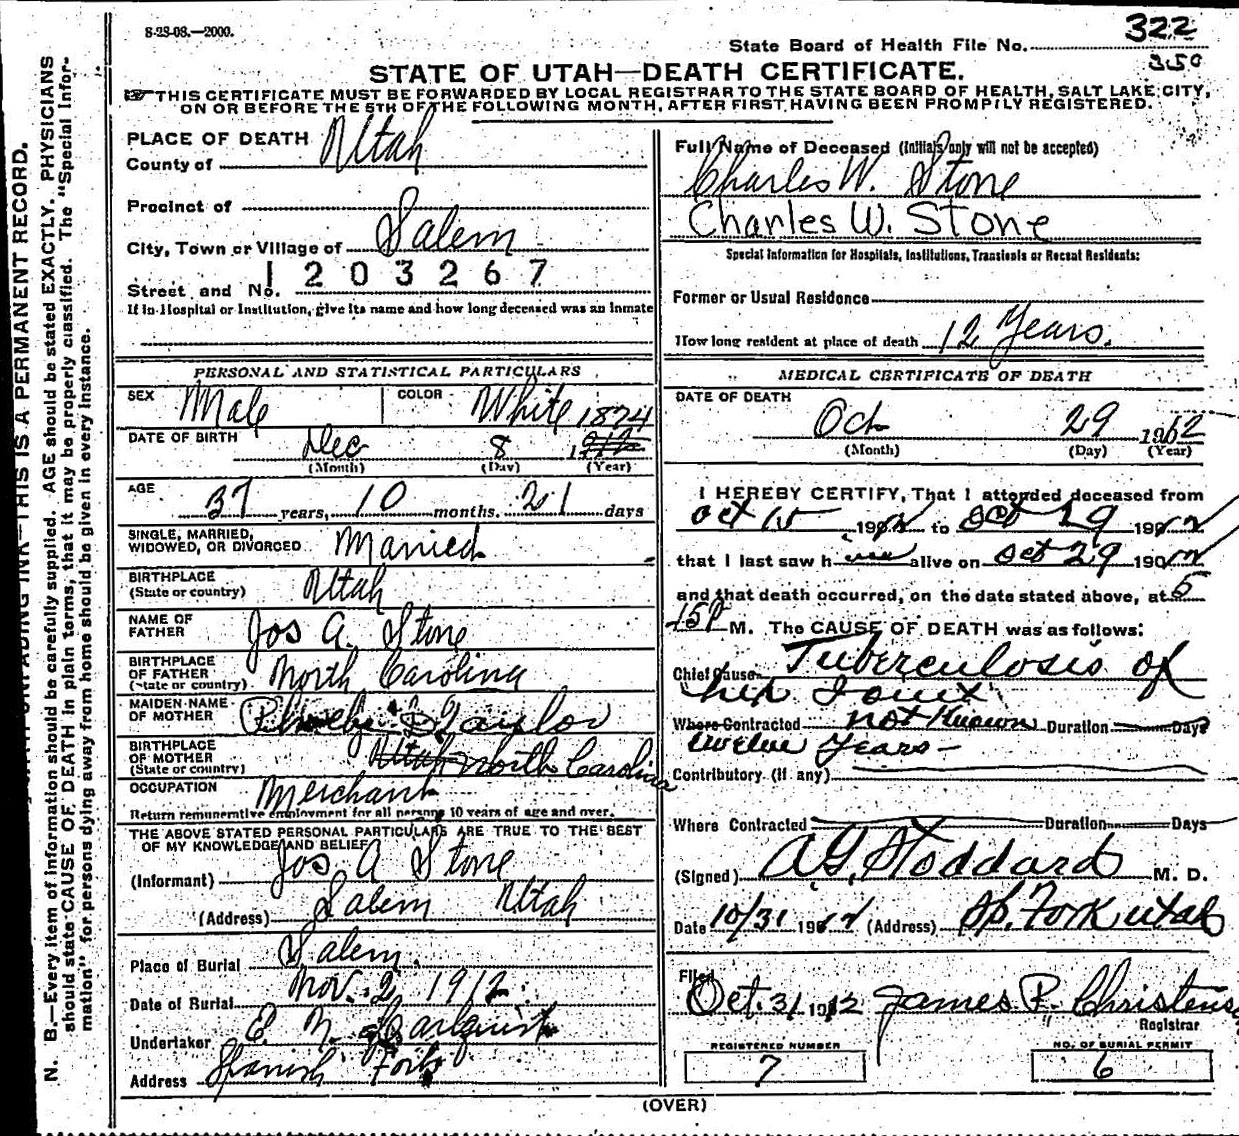 S-2S-08.—2000.
322
State Board of Health File No.
350
STATE OF UTAH—DEATH CERTIFICATE.
THIS CERTIFICATE MUST BE FORWARDED BY LOCAL REGISTRAR TO THE STATE BOARD OF HEALTH, SALT LAKE CITY,
ON OR BEFORE THE 5TH OF THE FOLLOWING MONTH, AFTER FIRST HAVING BEEN PROMPTLY REGISTERED.
N. B.—Every item of information should be carefully supplied. AGE should be stated EXACTLY. PHYSICIANS
should state CAUSE OF DEATH in plain terms, that it may be properly classified. The "Special Infor-
mation" for persons dying away from home should be given in every instance.
UNFADING INK—THIS IS A PERMANENT RECORD.
PLACE OF DEATH
County of Utah
Precinct of
City, Town or Village of Salem
1203267
Street and No.
If in Hospital or Institution, give its name and how long deceased was an inmate
PERSONAL AND STATISTICAL PARTICULARS
SEX Male COLOR White
1874
DATE OF BIRTH Dec 8
(Month) (Day) (Year)
AGE 37 years, 10 months. 21 days
SINGLE, MARRIED,
WIDOWED, OR DIVORCED Married
BIRTHPLACE
(State or country) Utah
NAME OF
FATHER Jos A. Stone
BIRTHPLACE
OF FATHER North Carolina
(State or country)
MAIDEN NAME
OF MOTHER Phoebe D Taylor
BIRTHPLACE
OF MOTHER Utah North Carolina
(State or country)
OCCUPATION Merchant
Return remunerative employment for all persons 10 years of age and over.
THE ABOVE STATED PERSONAL PARTICULARS ARE TRUE TO THE BEST
OF MY KNOWLEDGE AND BELIEF
(Informant) Jos A Stone
(Address) Salem Utah
Place of Burial Salem.
Date of Burial Nov. 2 1912
Undertaker E. N.
Address Spanish Fork
Full Name of Deceased (Initials only will not be accepted)
Charles W. Stone
Charles W. Stone
Special Information for Hospitals, Institutions, Transients or Recent Residents:
Former or Usual Residence
How long resident at place of death 12 Years.
MEDICAL CERTIFICATE OF DEATH
DATE OF DEATH
Oct 29 1912
(Month) (Day) (Year)
I HEREBY CERTIFY, That I attended deceased from
Oct 15 1912 to Oct 29 1912
that I last saw him alive on Oct 29 1912
and that death occurred, on the date stated above, at 5
15 P M. The CAUSE OF DEATH was as follows:
Chief Cause Tuberculosis of
hip Joint
Where Contracted not Known Duration Days
twelve Years—
Contributory (if any)
Where Contracted Duration Days
(Signed) A. G. Stoddard M. D.
Date 10/31 1912 (Address) Sp. Fork Utah
Filed
Oct. 31 1912 James P. Christens
Registrar
REGISTERED NUMBER
7
NO. OF BURIAL PERMIT
6
(OVER)